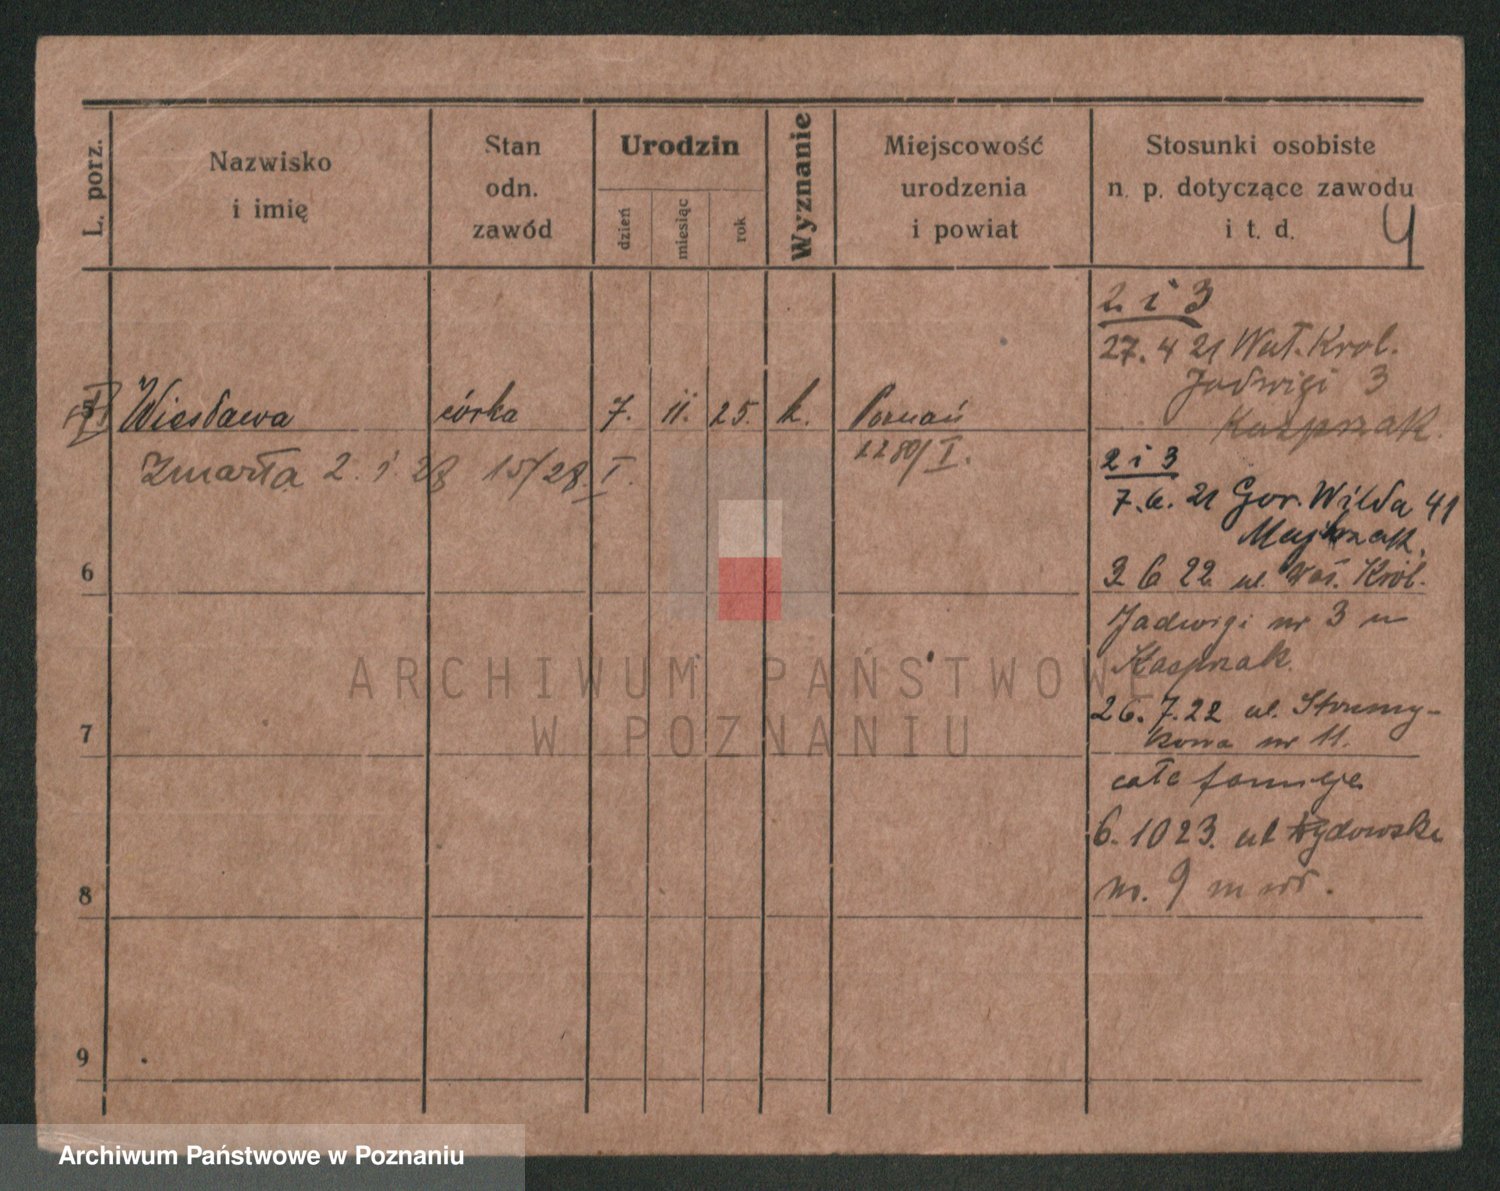 L. porz.
Nazwisko
i imię
Stan
odn.
zawód
Urodzin
dzień
miesiąc
rok
Wyznanie
Miejscowość
urodzenia
i powiat
Stosunki osobiste
n. p. dotyczące zawodu
i t. d.
4
2 i 3
27. 4 21 Wał. Krol.
Jadwigi 3
Kasprzak.
5 Wiesława córka 7. 11. 25. k. Poznań
2280/I.
Zmarła 2. i 28 15/28 I.
2 i 3
7. 6. 21 Gor. Wilda 41
6
3 6 22 ul. Wał. Król.
Jadwigi nr 3 u
Kasprzak.
26. 7. 22 ul. Strumy-
kowa nr 11.
7
całe familje
6. 10 23. ul Żydowska
nr. 9
8
9
ARCHIWUM PAŃSTWOWE
W POZNANIU
Archiwum Państwowe w Poznaniu